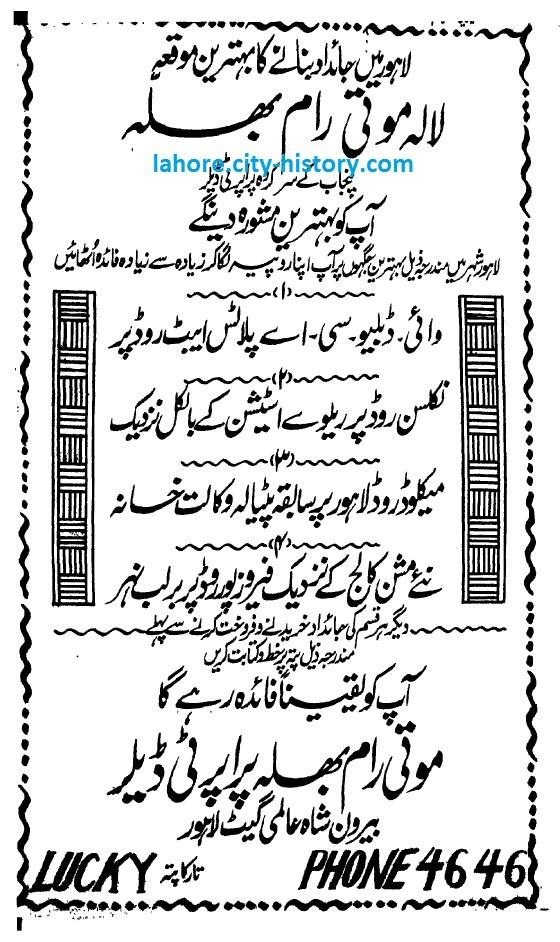 لاہور میں جائداد بنانے کا بہترین موقعہ
لالہ موتی رام بھلہ
lahore.city-history.com
پنجاب کے سرکردہ پراپرٹی ڈیلر
آپ کو بہترین مشورہ دینگے
لاہور شہر میں مندرجہ ذیل بہترین جگہوں پر آپ اپنا روپیہ لگا کر زیادہ سے زیادہ فائدہ اُٹھائیں
(۱)
وائی۔ ڈبلیو۔ سی۔ اے پلاٹس ایبٹ روڈ پر
(۲)
نکلسن روڈ پر ریلوے اسٹیشن کے بالکل نزدیک
(۳)
میکلوڈ روڈ لاہور پر سابقہ پٹیالہ وکالت خانہ
(۴)
نئے مشن کالج کے نزدیک فیروزپور روڈ پر برلب نہر
دیگر ہر قسم کی جائداد خریدنے و فروخت کرنے سے پہلے
مندرجہ ذیل پتہ پر خط و کتابت کریں
آپ کو یقیناً فائدہ رہے گا
موتی رام بھلہ پراپرٹی ڈیلر
بیرون شاہ عالمی گیٹ لاہور
PHONE 4646 تار کا پتہ LUCKY